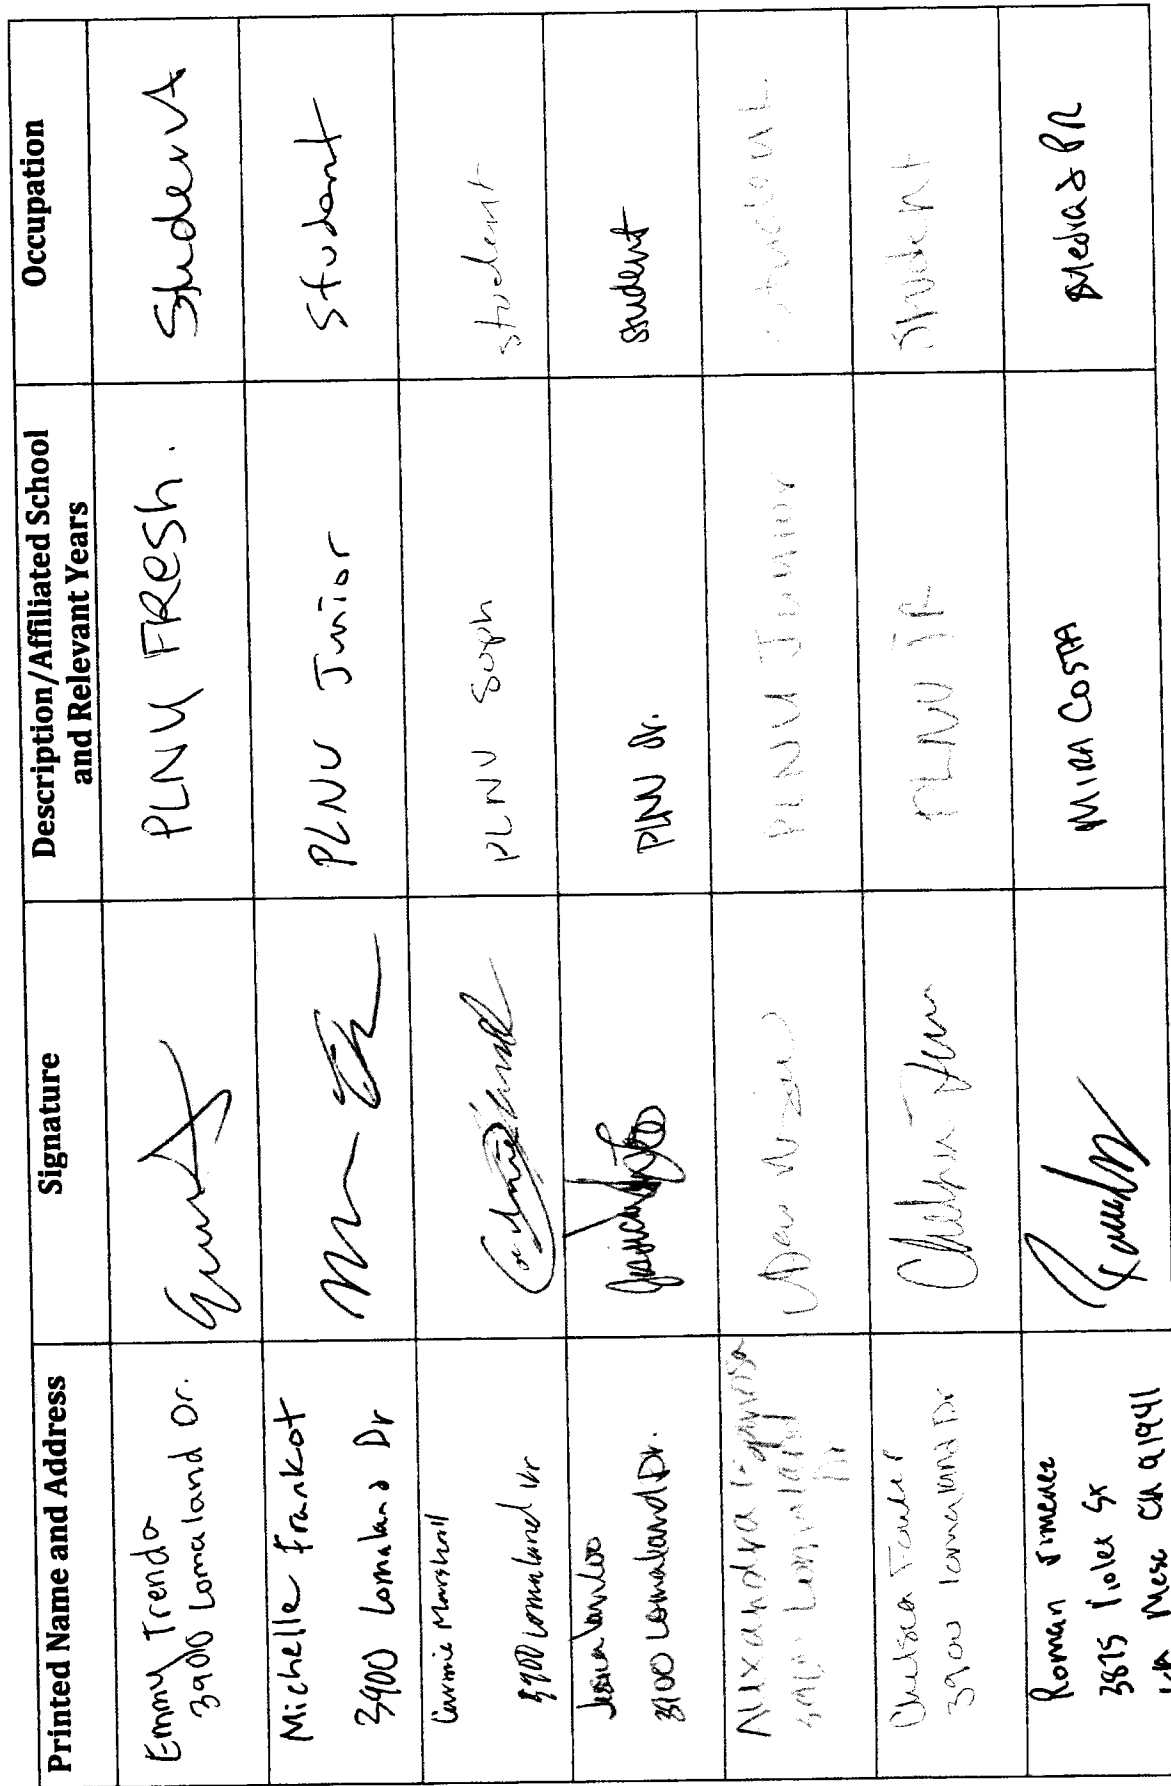 Printed Name and Address
Signature
Description/Affiliated School
and Relevant Years
Occupation
Emmy Trenda
3900 Lomaland Dr.
PLNU FRESh.
Student
Michelle Frankot
3900 Lomaland Dr
PLNU Junior
Student
Carmie Marshall
3900 Lomaland Dr
PLNU Soph
student
Jessica
3900 Lomaland Dr.
PLNU Sr.
student
Alexandra
3900 Lomaland
Dr
PLNU Junior
student
Chelsea Fowler
3900 Lomaland Dr
PLNU JR
Student
Roman Jimenez
3875 Violet St
La Mesa CA 91941
MIRA COSTA
Media & PR